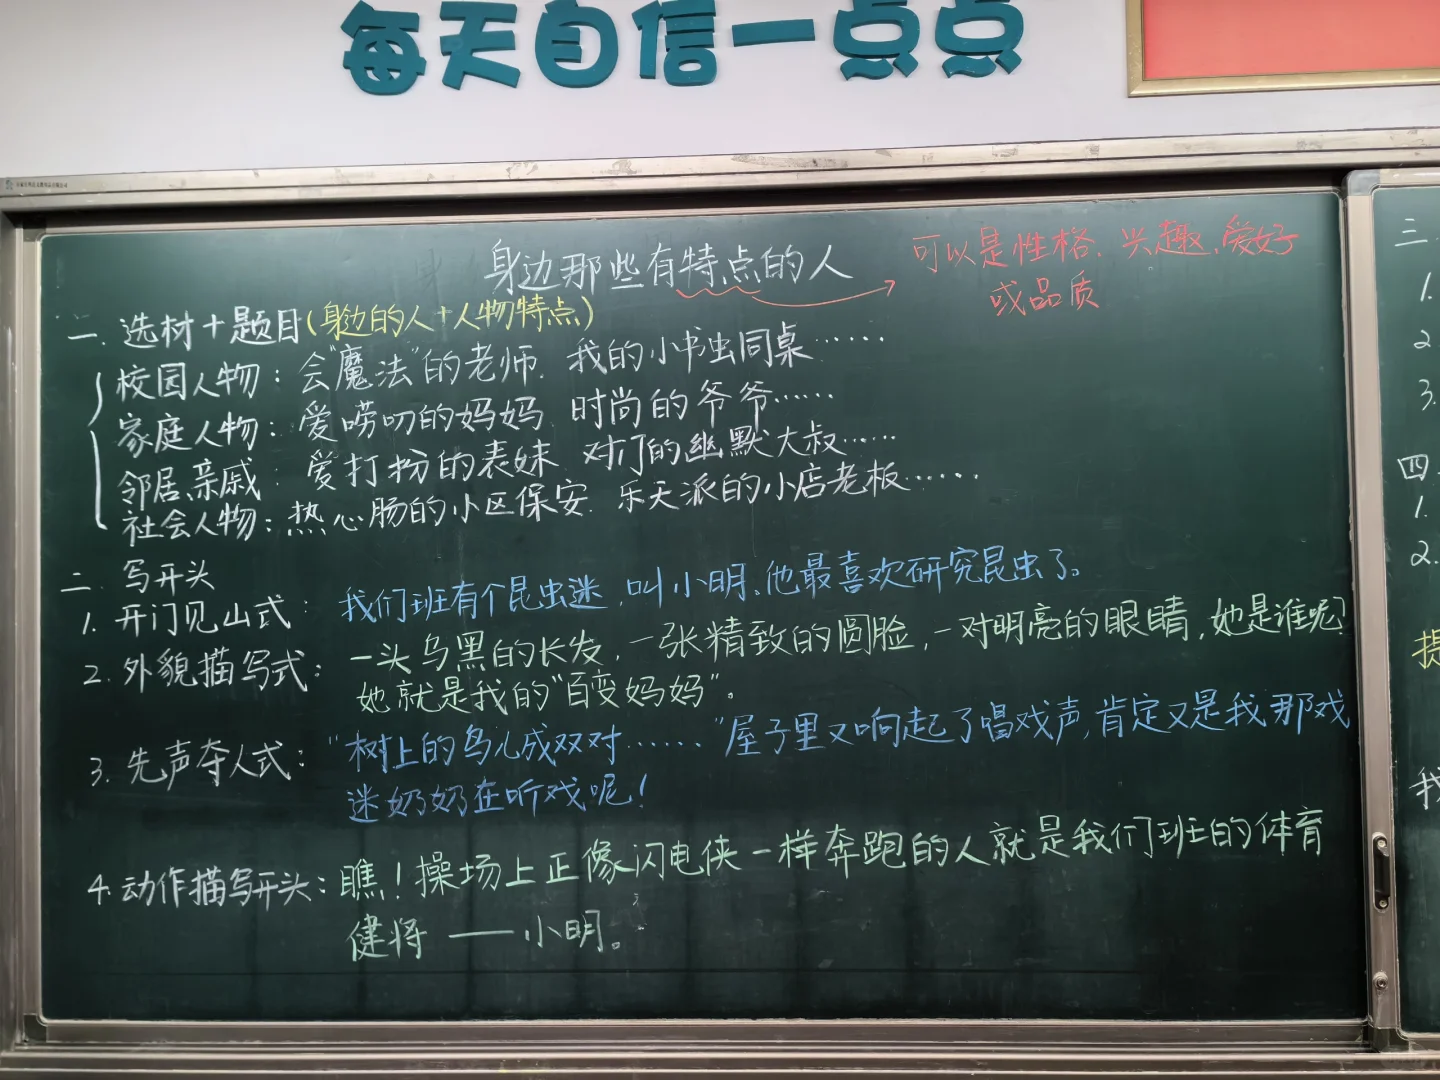 每天自信一点点
身边那些有特点的人
可以是性格、兴趣、爱好
或品质
一. 选材+题目(身边的人+人物特点)
校园人物：会"魔法"的老师. 我的小书虫同桌……
家庭人物：爱唠叨的妈妈 时尚的爷爷……
邻居亲戚：爱打扮的表妹 对门的幽默大叔……
社会人物：热心肠的小区保安. 乐天派的小店老板……
二. 写开头
1. 开门见山式：我们班有个昆虫迷，叫小明、他最喜欢研究昆虫了。
2. 外貌描写式：一头乌黑的长发，一张精致的圆脸，一对明亮的眼睛，她是谁呢?
她就是我的"百变妈妈"。
3. 先声夺人式："树上的鸟儿成双对……"屋子里又响起了唱戏声，肯定又是我那戏
迷奶奶在听戏呢！
4. 动作描写开头：瞧！操场上正像闪电侠一样奔跑的人就是我们班的体育
健将——小明。
三
1.
2
3.
四
1.
2.
提
我